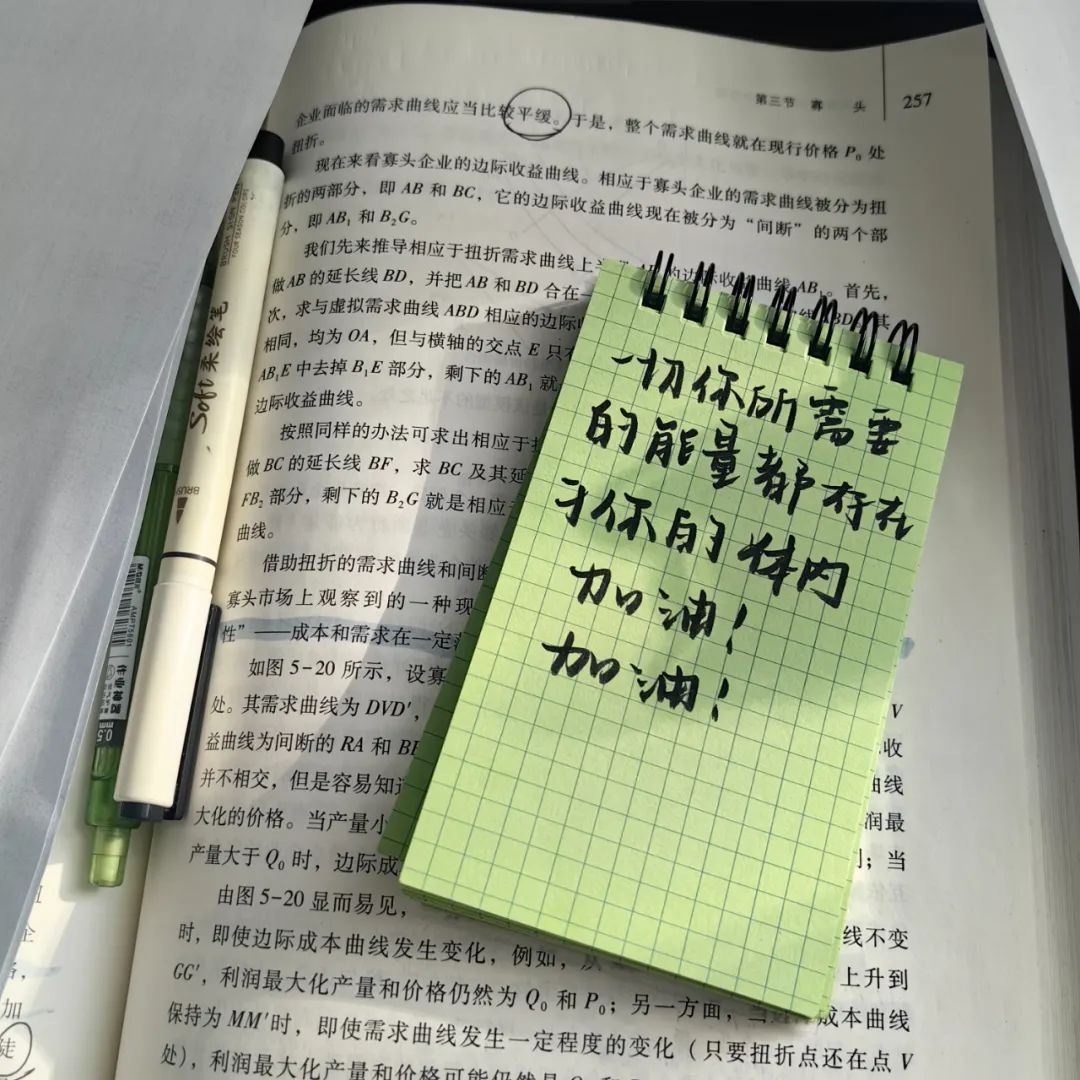 第三节 寡 头 257
企业面临的需求曲线应当比较平缓。于是，整个需求曲线就在现行价格 P₀ 处
扭折。
现在来看寡头企业的边际收益曲线。相应于寡头企业的需求曲线被分为扭
折的两部分，即 AB 和 BC，它的边际收益曲线现在被分为“间断”的两个部
分，即 AB₁ 和 B₂G。
我们先来推导相应于扭折需求曲线上 的边际收益曲线 AB₁。首先，
做 AB 的延长线 BD，并把 AB 和 BD 合在一
次，求与虚拟需求曲线 ABD 相应的边际
相同，均为 OA，但与横轴的交点 E 只
AB₁E 中去掉 B₁E 部分，剩下的 AB₁ 就
边际收益曲线。
按照同样的办法可求出相应于
做 BC 的延长线 BF，求 BC 及其延
FB₂ 部分，剩下的 B₂G 就是相应
曲线。
借助扭折的需求曲线和间断
寡头市场上观察到的一种现
性”——成本和需求在一定
如图 5-20 所示，设寡 V
处。其需求曲线为 DVD′， 收
益曲线为间断的 RA 和 曲线
并不相交，但是容易知 润最
大化的价格。当产量小 ；当
产量大于 Q₀ 时，边际成
由图 5-20 显而易见， 线不变
时，即使边际成本曲线发生变化，例如， 上升到
GG′，利润最大化产量和价格仍然为 Q₀ 和 P₀；另一方面， 成本曲线
保持为 MM′时，即使需求曲线发生一定程度的变化（只要扭折点还在点 V
处），利润最大化产量和价格可能仍然是
一切你所需要
的能量都存在
于你的体内
加油！
加油！
Soft 柔绘笔
BRUSH
M&G晨光
AMPT5801
优等赏
0.5
mm
企
加
徒